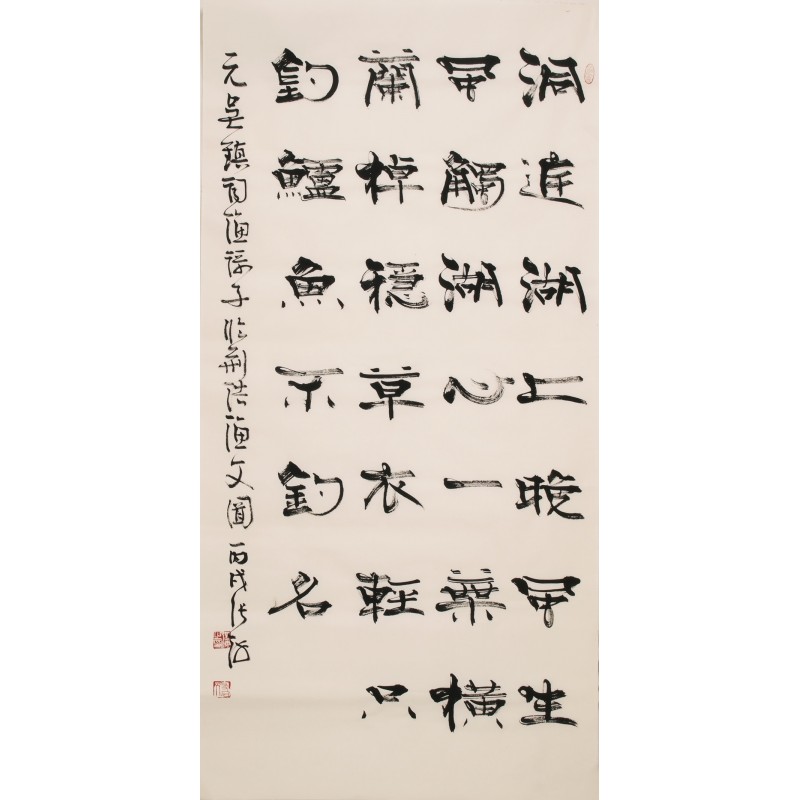 洞庭湖上晚風生
風觸湖心一葉橫
蘭棹穩草衣輕只
釣鱸魚不釣名
元吳鎮漁歌子臨荊浩漁父圖丙戌張